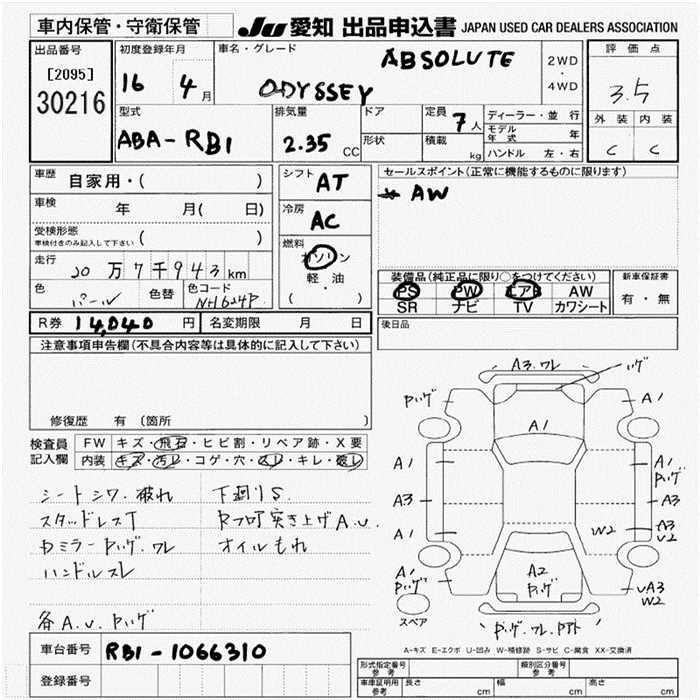 車内保管・守衛保管
JU 愛知 出品申込書 JAPAN USED CAR DEALERS ASSOCIATION
出品番号
[2095]
30216
初度登録年月
16 4月
車名・グレード
ABSOLUTE
ODYSSEY
2WD
・
4WD
評価点
3.5
外装 内装
C C
型式
ABA-RB1
排気量
2.35 CC
ドア
形状
定員 7人
積載 kg
ディーラー・並行
モデル年式 年
ハンドル 左・右
車歴 自家用・( )
車検 年 月( 日)
受検形態
車検付きのみ記入して下さい ( )
走行 20万7千943km
色 パール
色替
色コード NH624P
シフト AT
冷房 AC
燃料
ガソリン
軽・油
( )
セールスポイント(正常に機能するものに限ります)
AW
装備品(純正品に限り○をつけてください)
PS PW エアB AW
SR ナビ TV カワシート
新車保証書
有・無
後日品
R券 14,040円 名変期限 月 日
注意事項申告欄(不具合内容等は具体的に記入して下さい)
修復歴 有(箇所 )
検査員
記入欄
FW キズ・飛石・ヒビ割・リペア跡・X要
内装 キズ・汚レ・コゲ・穴・スレ・キレ・破レ
シートシワ.破れ 下廻りS
スタッドレスT Rフロア突き上げA.U.
ミラーPハゲ.ワレ オイルもれ
ハンドルスレ
各A.U.Pハゲ
A3.ワレ
ハゲ
Pハゲ
A1
A1
A1
A1
Pハゲ
A3
A3
A1
W2
A3
U2
A1
Pハゲ
A2
Pハゲ
UA3
W2
スペア
Pハゲ.ワレ
A-キズ E-エクボ U-凹み W-補修跡 S-サビ C-腐食 XX-交換済
車台番号 RB1-1066310
登録番号
形式指定番号
参考
類別区分番号
参考
車庫証明用
参考
長さ cm 幅 cm 高さ cm